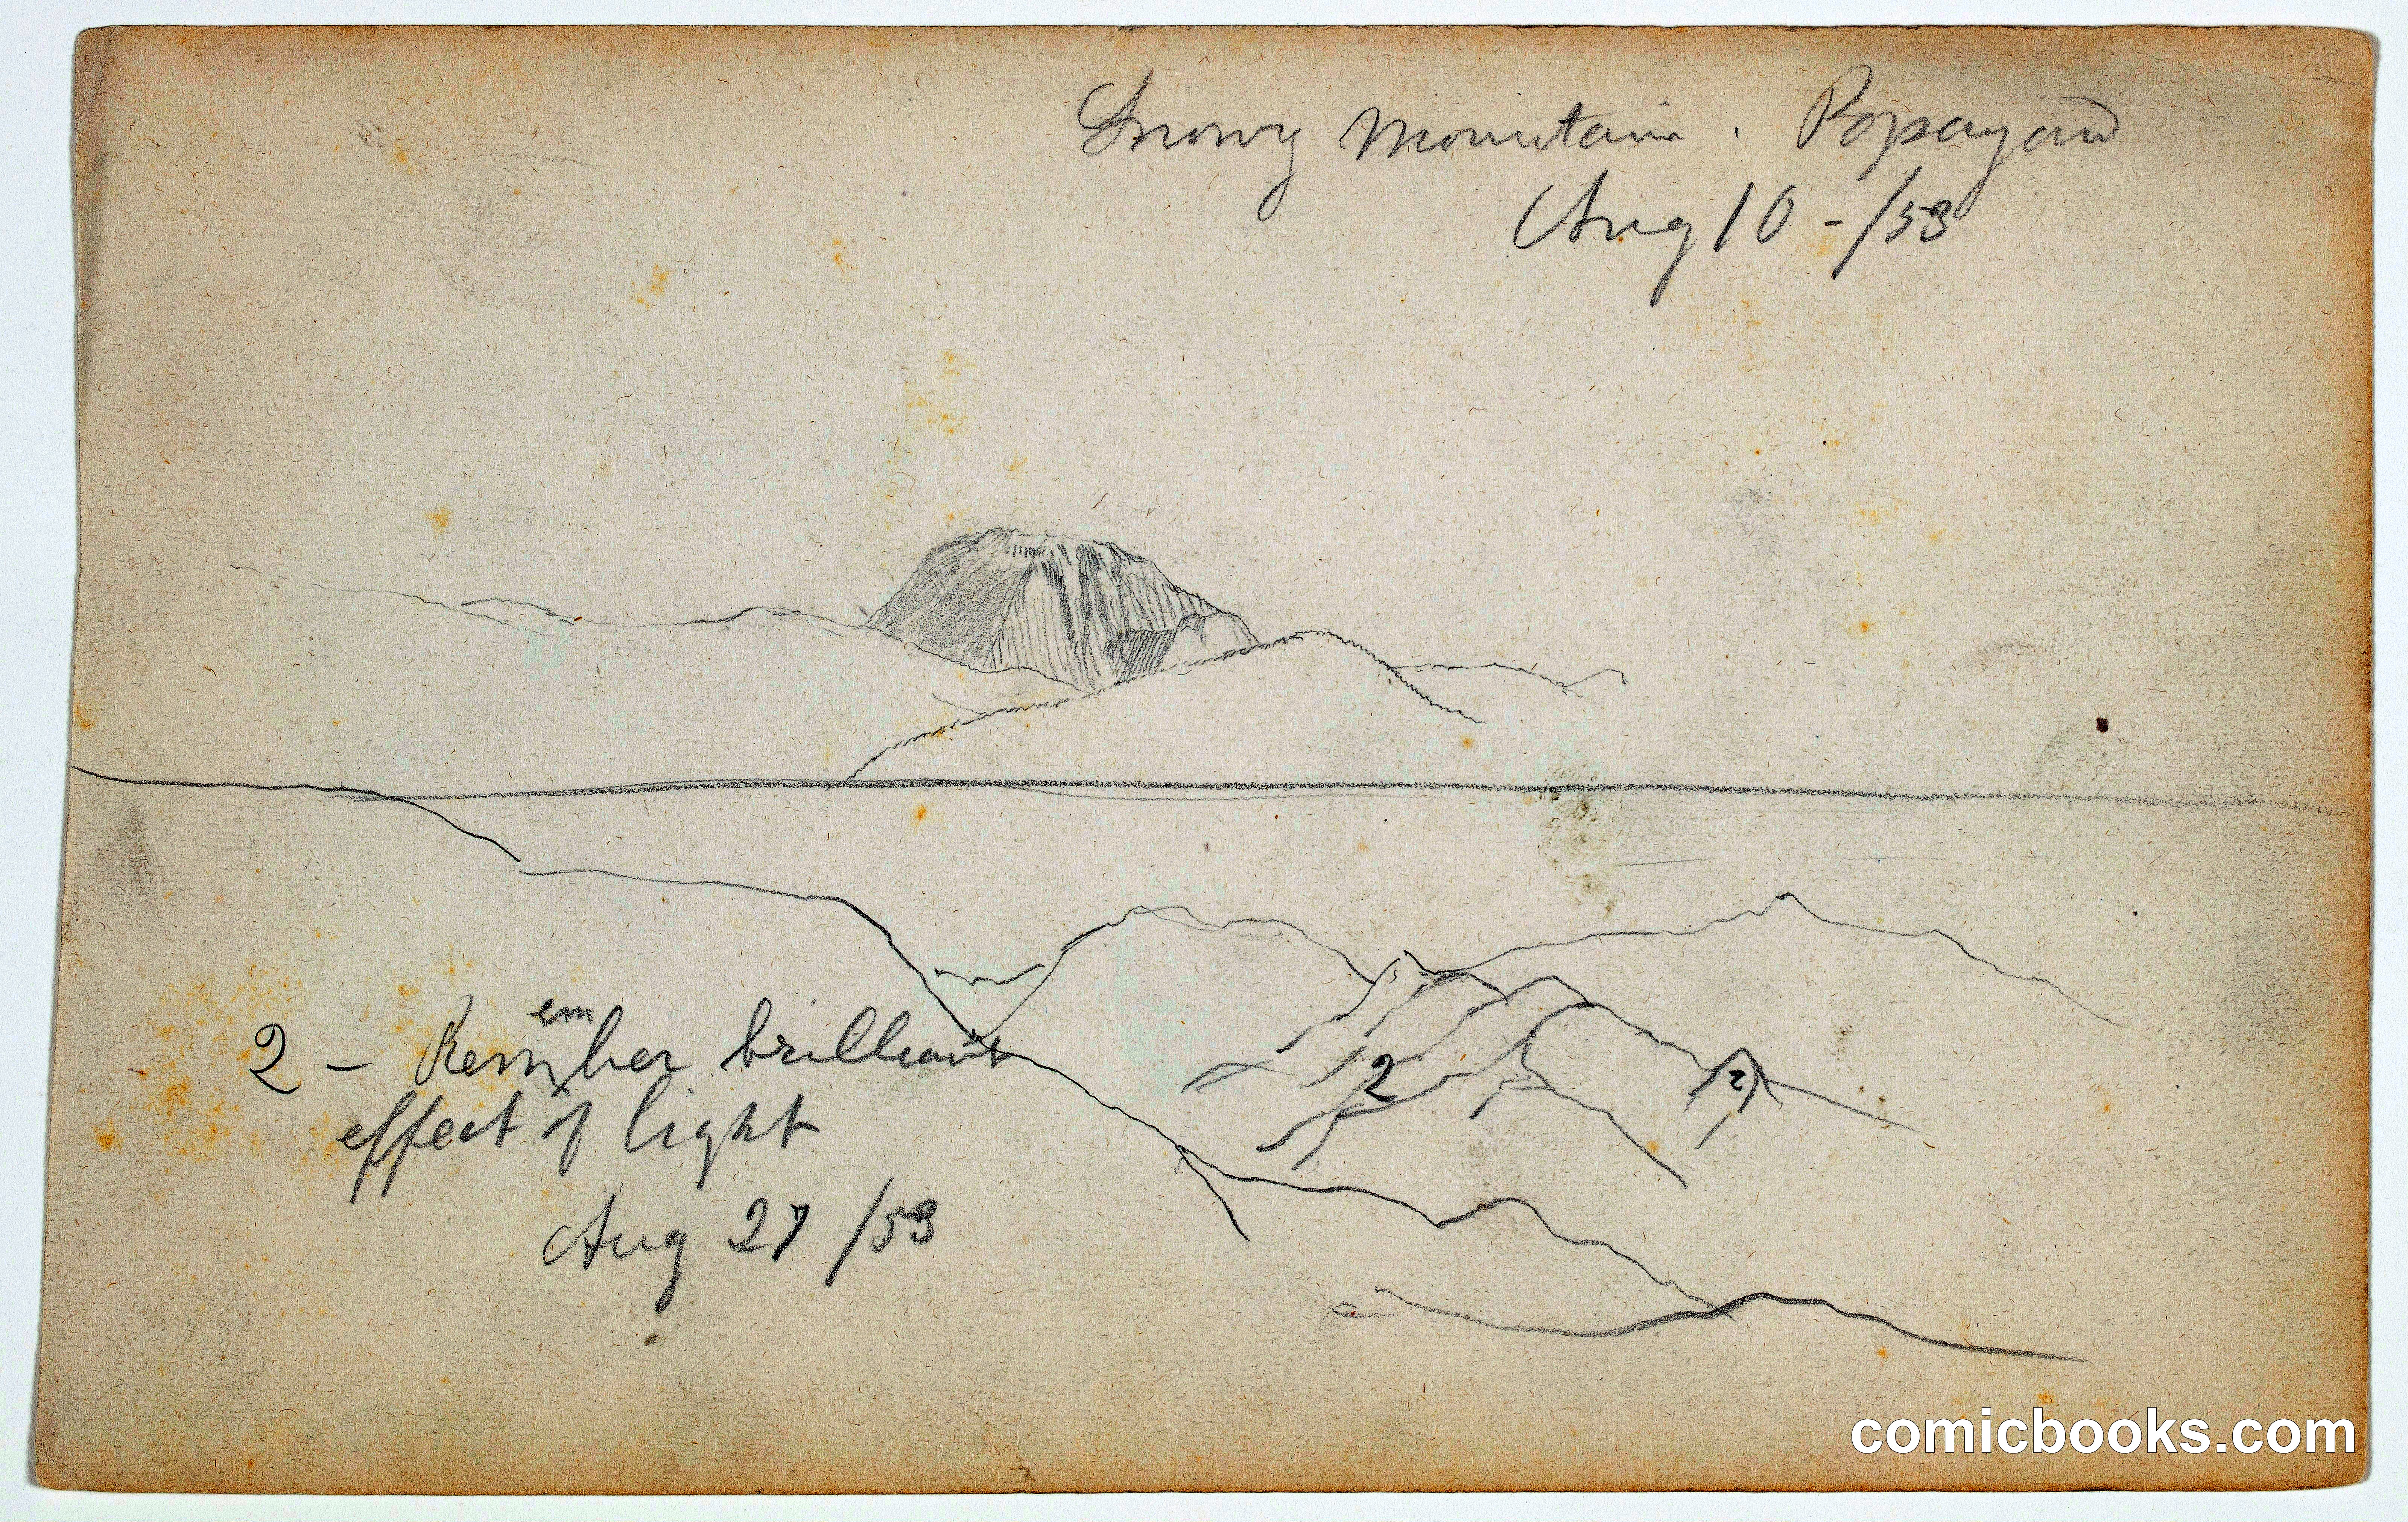 Snowy Mountain. Popayan
Aug 10 - /53
2 - Remember brilliant
effect of light
Aug 27 /53
2
2
comicbooks.com